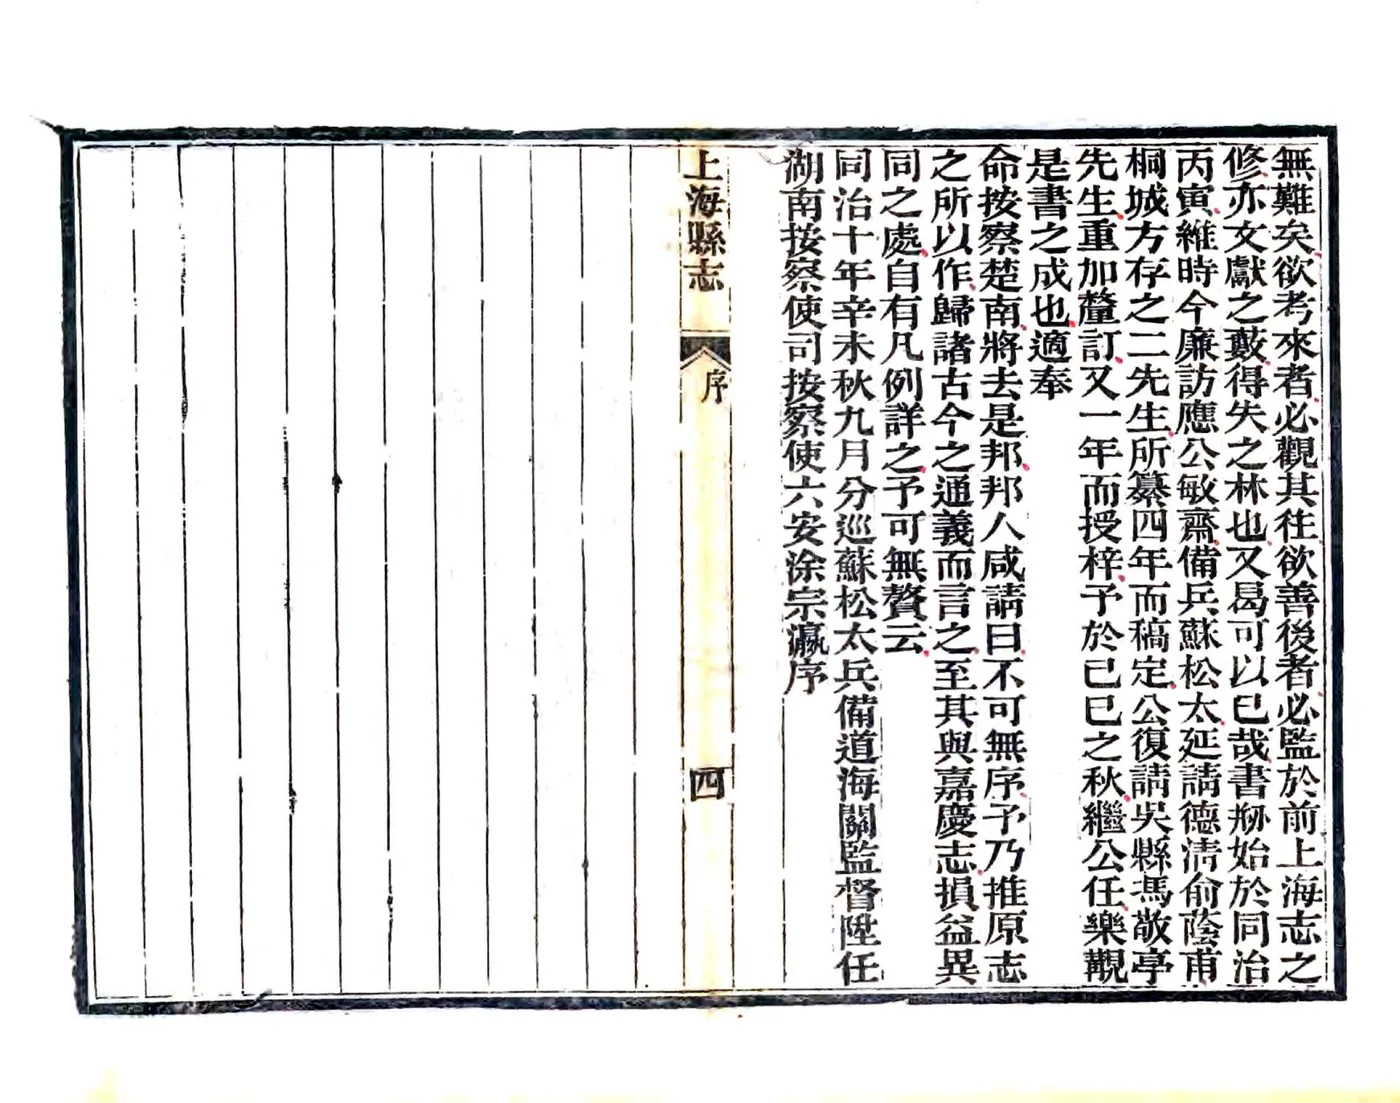 無難矣欲考來者必觀其往欲善後者必監於前上海志之
修亦文獻之藪得失之林也又曷可以已哉書剏始於同治
丙寅維時今廉訪應公敏齋備兵蘇松太延請德淸俞蔭甫
桐城方存之二先生所纂四年而稿定公復請吳縣馮敬亭
先生重加釐訂又一年而授梓予於己巳之秋繼公任樂觀
是書之成也適奉
命按察楚南將去是邦邦人咸請曰不可無序予乃推原志
之所以作歸諸古今之通義而言之至其與嘉慶志損益異
同之處自有凡例詳之予可無贅云
同治十年辛未秋九月分巡蘇松太兵備道海關監督陞任
湖南按察使司按察使六安涂宗瀛序
上海縣志
序
四